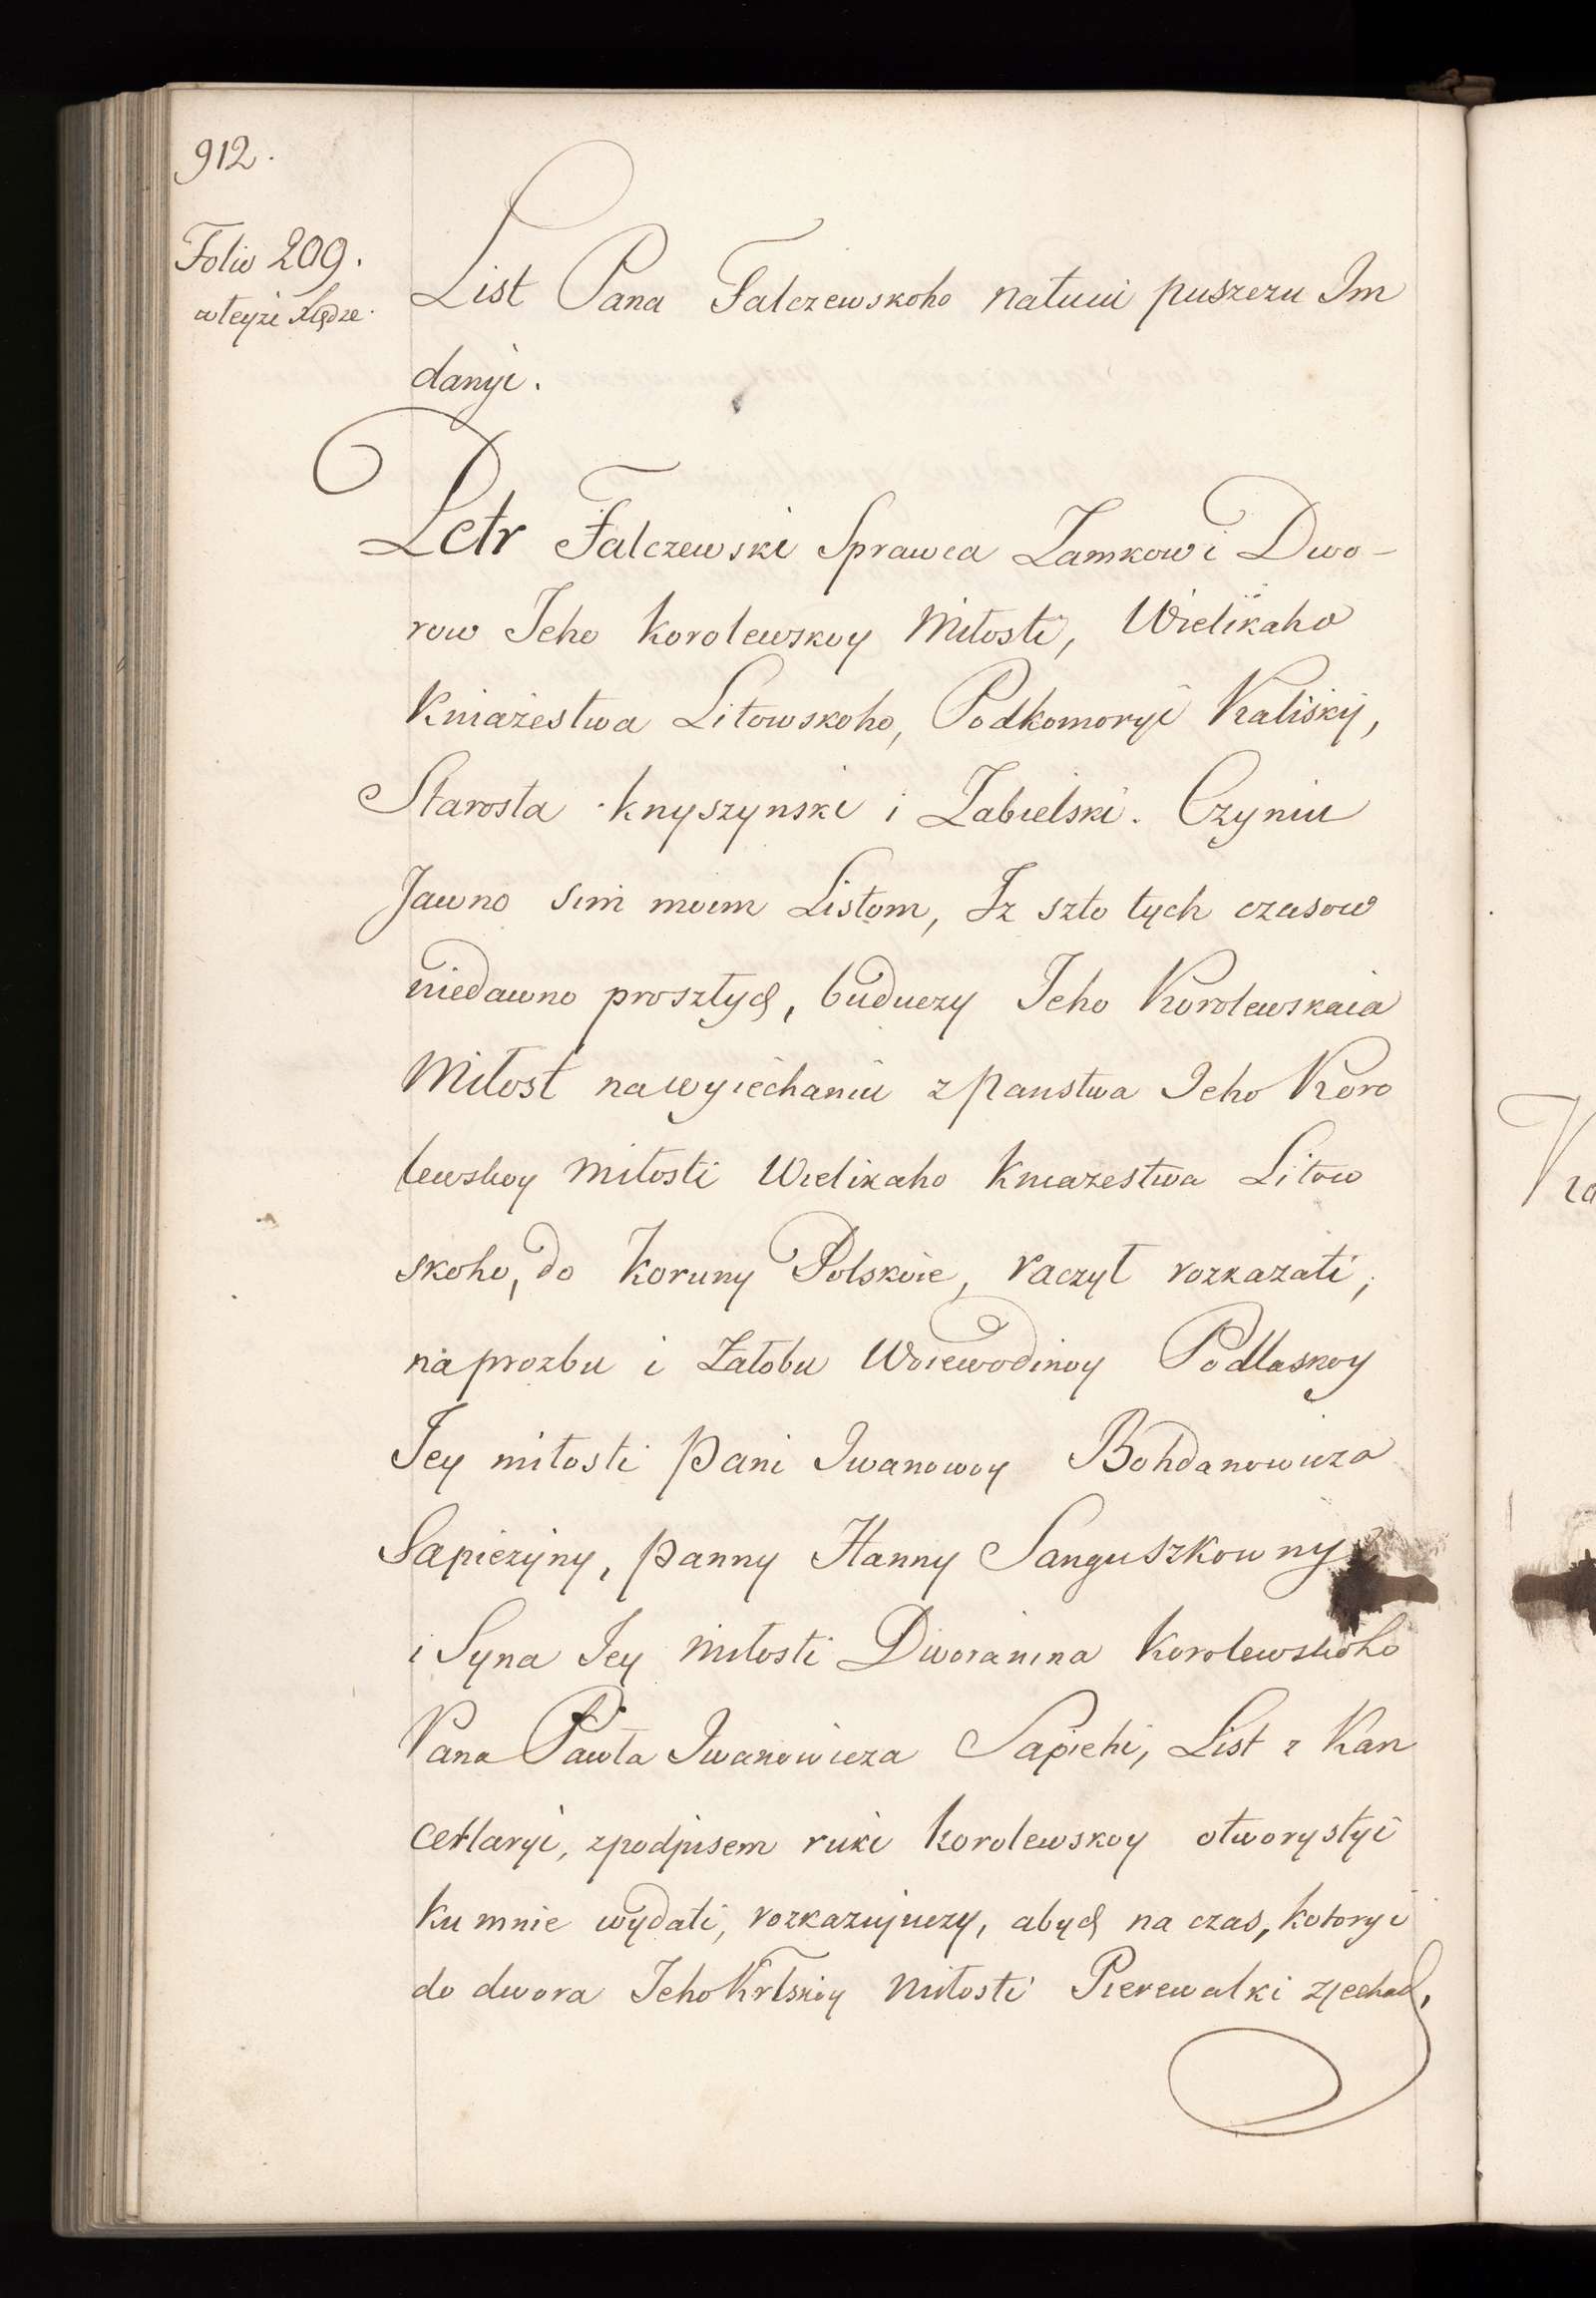 912.
Folio 209.
w teyże xiędze.
List Pana Falczewskoho natuiu puszczu Im
danyi.
Petr Falczewski Sprawca Zamkow i Dwo-
row Jeho Korolewskoy Miłosti, Wielikaho
Kniażestwa Litowskoho, Podkomoryi Kaliskij,
Starosta Knyszynski i Zabielski. Czyniu
Jawno sim moim Listom, Iż szto tych czasow
niedawno proszłych, buduczy Jeho Korolewskaia
Miłost na wyiechaniu z panstwa Jeho Koro
lewskoy miłosti Wielikaho Kniażestwa Litow
skoho, do Koruny Polskoie, raczył rozkazati,
na prozbu i żałobu Woiewodinoy Podlaskoy
Jey miłosti Pani Iwanowoy Bohdanowicza
Sapieżyny, panny Hanny Sanguszkowny
i Syna Jey Miłosti Dworanina Korolewskoho
Pana Pawła Iwanowicza Sapiehi, List z Kan
cellaryi, z podpisem ruki Korolewskoy otworystyi
ku mnie wydati, rozkazujuczy, abych na czas, kotoryi
do dwora Jeho Krlskoy Miłosti Pierewalki zjechał,